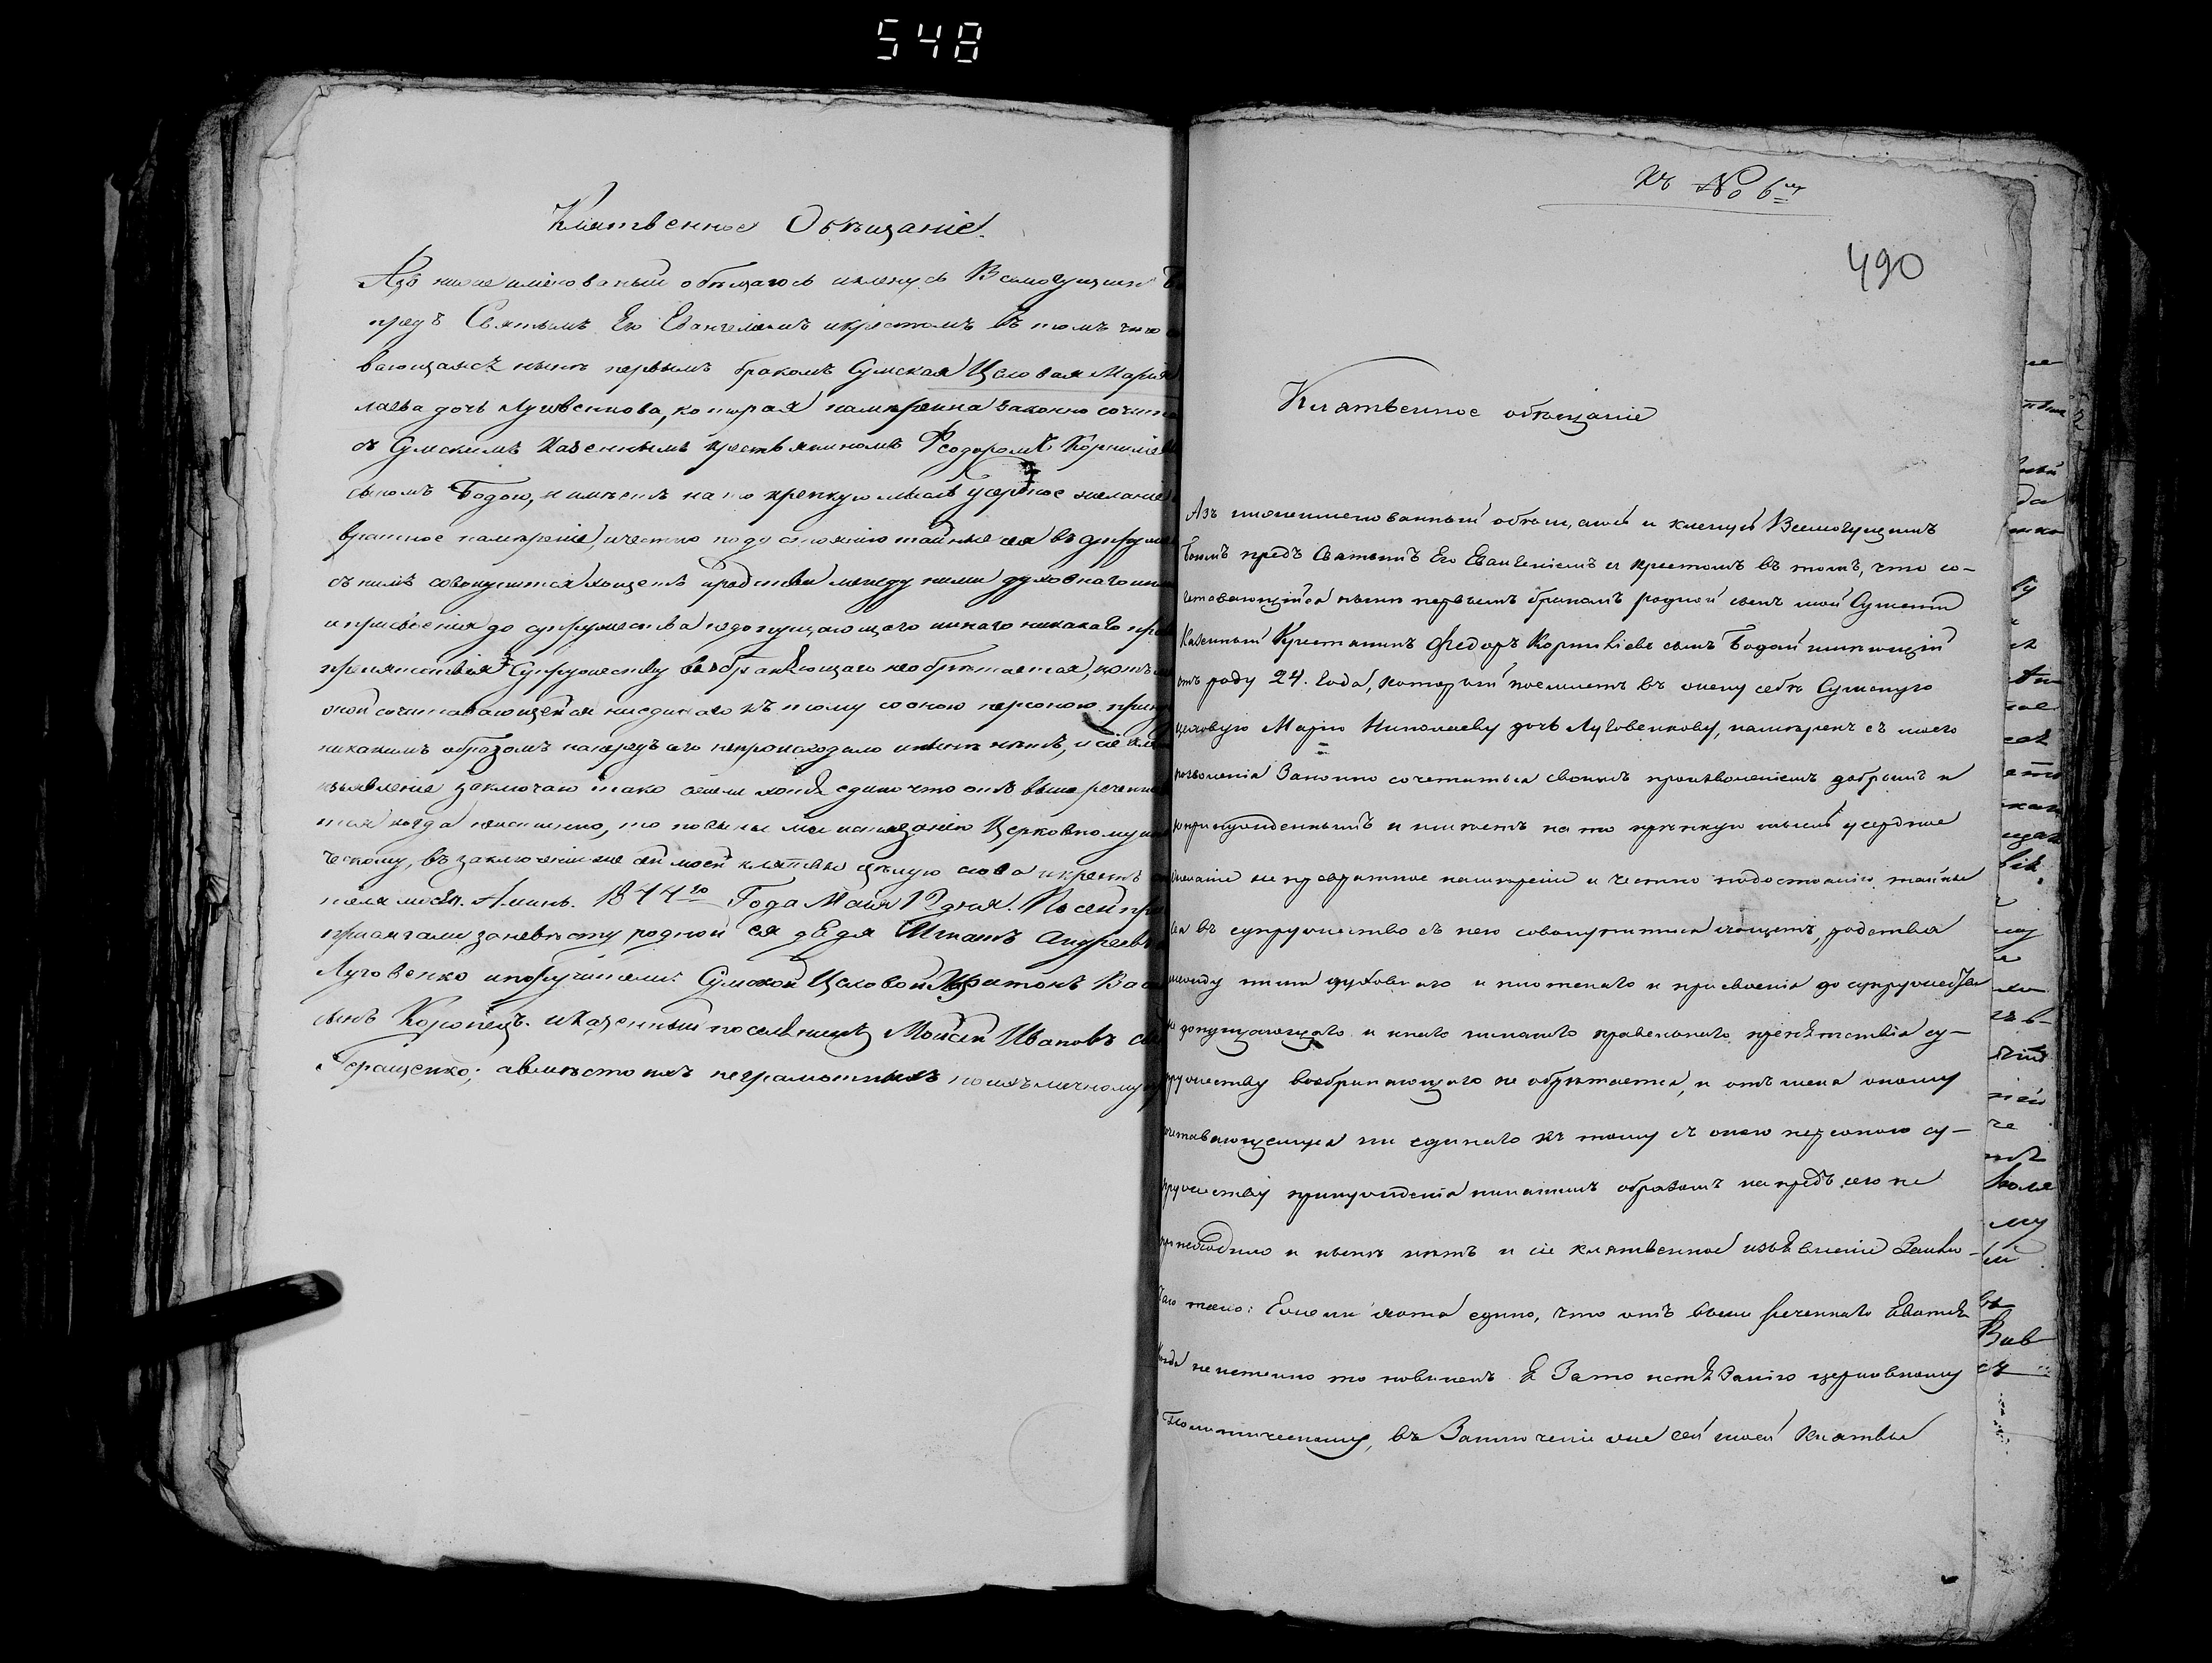 548
Клятвенное Обѣщаніе.
Азъ нижеимѣнованый обѣщаюсь и кленусь Всемогущимъ
предъ Святымъ Его Евангеліемъ и крестомъ въ томъ что
вающаясѣ нынѣ первымъ бракомъ Сумская Цеховая Марія
лаева дочь Луговенкова, которая намѣренна законно сочита
съ Сумскимъ Казеннымъ крестьяниномъ Феодоромъ Корниліев
сыномъ Бодаю, и имѣетъ на то крепкую мысль усердное желаніе
вратное намѣреніе, и честно по достоянію тайные сея въ супруже
съ нимъ совокупится хощетъ сродства между ними духовнаго и
и присвоения до супружества недопущающаго инаго никакаго пра
препятствія Супружеству возбраняющаго необрѣтается, и отъ
оной сочитавающейся ниединаго къ тому сооною персоною прин
никакимъ образомъ напредъ его непроисходило и нынѣ нѣтъ, и сіе кля
изьявленіе заключаю тако ежели хотя едино что отъ выше реченна
тся когда неистинно, то повиненъ истязанію Церковному и
ческому, въ заключеніи же сей моей клятвы цѣлую слова и крестъ
теля моего. Аминь. 1844го Года Маія 12 дня. По сей при
присягали заневѣсту родной ея дядя Игнатъ Андреевъ
Луговенко и поручители: Сумской Цеховой Харитонъ Вас
сынъ Коропецъ. и Казенный поселянинъ Мойсей Ивановъ сын
Геращенко; а вмѣсто ихъ неграмотныхъ по ихъ личному
Къ № 6му
490
Клятвенное обѣщаніе
Азъ нижеименованный обѣщаюсь и кленусь Всемогущимъ
Богомъ предъ Святымъ Его Евангеліемъ и крестомъ въ томъ, что со-
четавающійся нынѣ первымъ бракомъ родной сынъ мой Сумской
Казенный Крестянинъ Федоръ Корнилѣевъ сынъ Бодай имѣющій
отъ роду 24. года, который поемлетъ въ жену себѣ Сумскую
цеховую Марію Николаеву дочь Луговенкову, намѣренъ съ моего
позволенія Законно сочетаться своимъ произволеніемъ добрымъ и
непринужденнымъ и имѣетъ на то крѣпкую мысль усердное
желаніе не превратное намѣреніе и честно подостоянію тайные
сея въ супружество съ нею совокупитися хощетъ, родства
между ними духовнаго и плотскаго и присвоенія до супружества
не допущающаго и инаго никакаго правельнаго препятствія су-
пружеству возбраняющаго не обрѣтается, и отъ меня оному
сочетавающемуся ни единаго къ тому съ оною персоною су-
пружеству принужденія никакимъ образомъ напредъ сего не
происходило и нынѣ нѣтъ и сіе клятвенное изъявленіе Заклю-
чаю тако: Ежели хотя едино, что отъ выше реченнаго явится
когда неистенно то повиненъ я За то истязанію церковному
и Политическому, въ Заключеніе же сей моей Клятвы